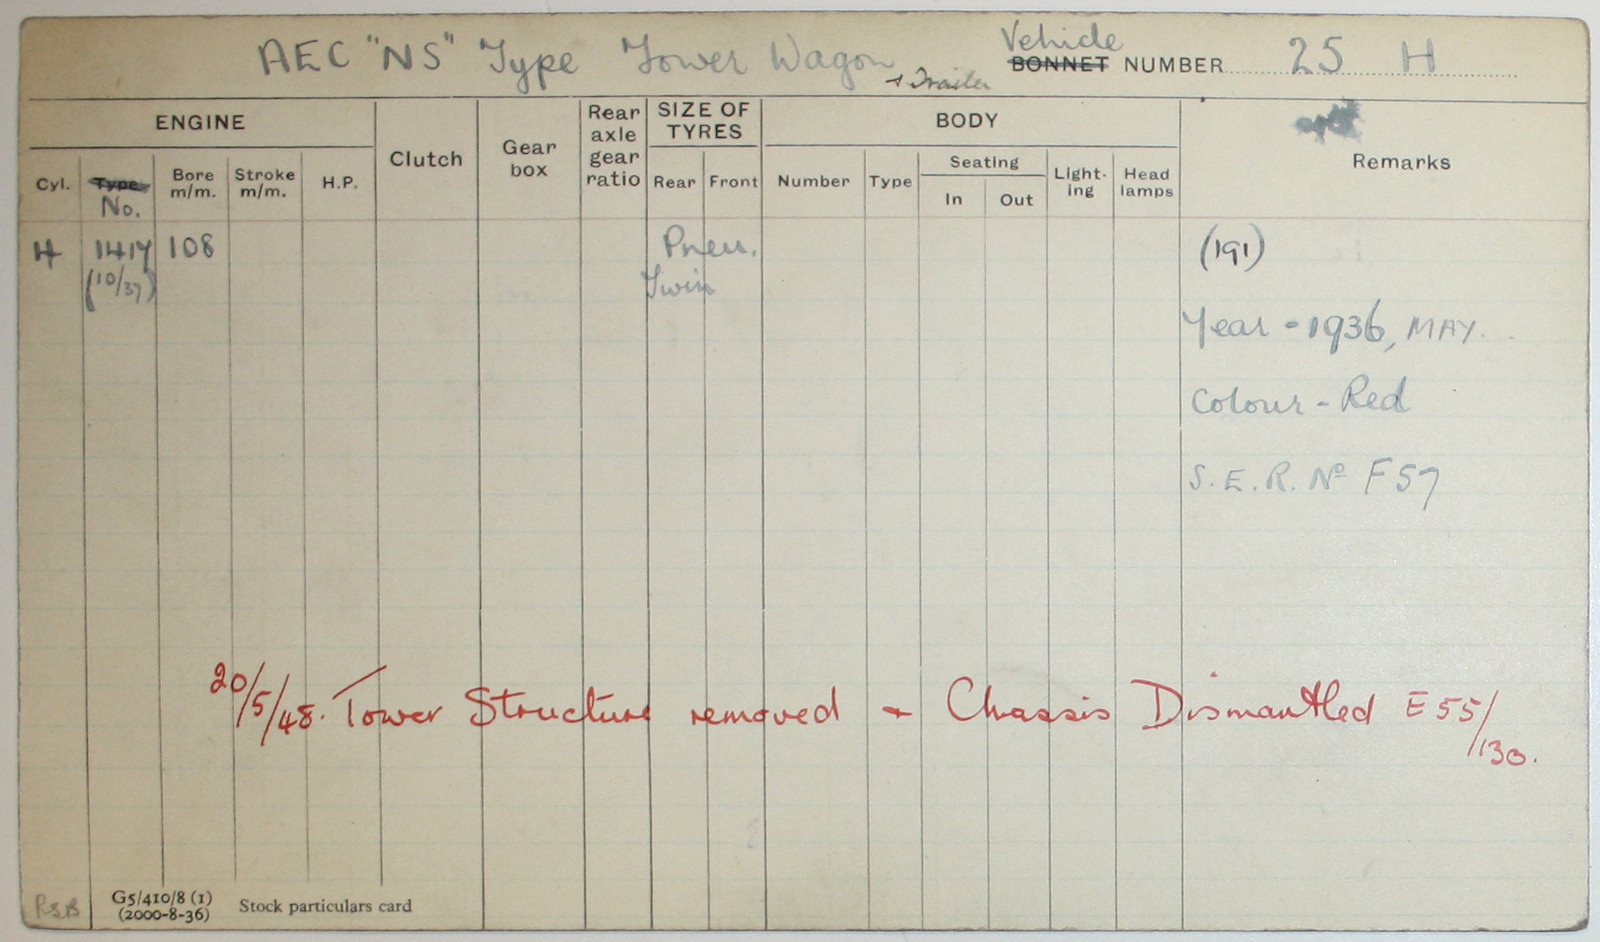 AEC "NS" Type Tower Wagon + Trailer
Vehicle
BONNET NUMBER 25 H
ENGINE
Clutch
Gear box
Rear axle gear ratio
SIZE OF TYRES
BODY
Remarks
Cyl. Type No. Bore m/m. Stroke m/m. H.P.
Rear Front
Number Type Seating In Out Light-ing Head lamps
4 1417 108 Pneu. (191)
(10/37) Twin
Year - 1936, MAY.
Colour - Red
S.E.R. Nº F57
20/5/48. Tower Structure removed + Chassis Dismantled E55/130.
RSB G5/410/8 (1)
(2000-8-36) Stock particulars card